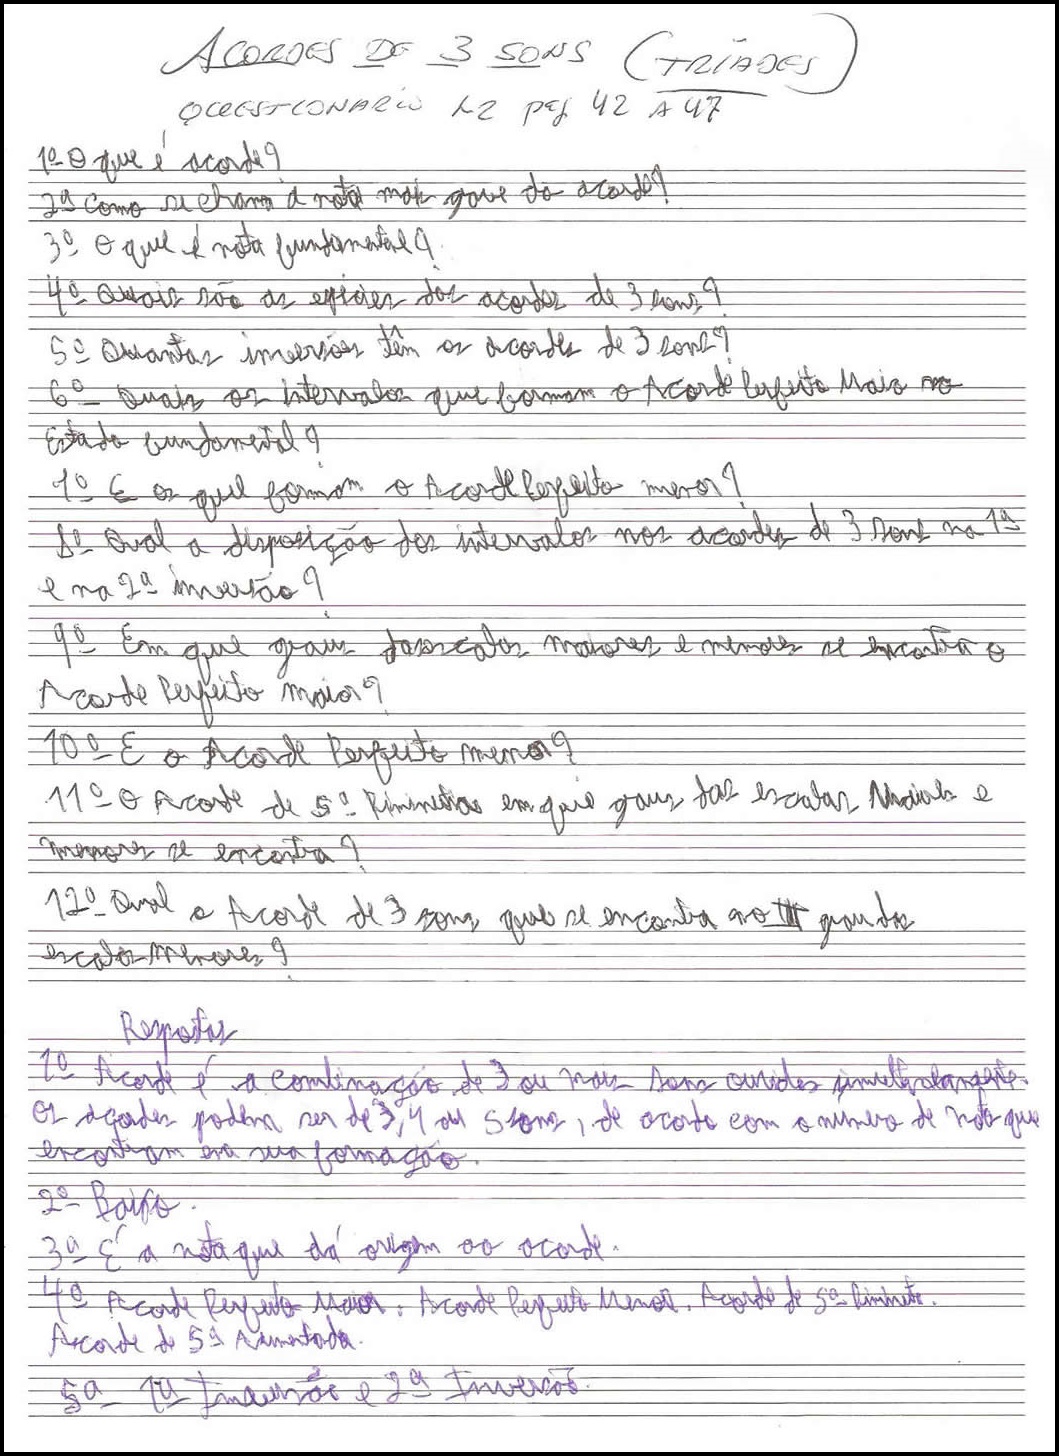 ACORDES DE 3 SONS (TRÍADES)
QUESTIONARIO 12 PAG 42 A 47
1º O que é acorde?
2ª Como se chama a nota mais grave do acorde?
3º O que é nota fundamental?
4º Quais são as espécies dos acordes de 3 sons?
5º Quantas inversões têm os acordes de 3 sons?
6º Quais os intervalos que formam o Acorde Perfeito Maior no
Estado fundamental?
7º E os que formam o Acorde Perfeito menor?
8º Qual a disposição dos intervalos nos acordes de 3 sons na 1ª
e na 2ª inversão?
9º Em que graus das escalas maiores e menores se encontra o
Acorde Perfeito maior?
10º E o Acorde Perfeito menor?
11º O Acorde de 5ª em que graus das escalas Maiores e
menores se encontra?
12º Qual o Acorde de 3 sons que se encontra no III grau das
escalas menores?
Respostas
1º Acorde é a combinação de 3 ou mais sons ouvidos
Os acordes podem ser de 3, 4 ou 5 sons, de acordo com o numero de nota que
encontram em sua formação.
2º Baixo.
3ª É a nota que dá origem ao acorde.
4º Acorde Perfeito Maior, Acorde Perfeito Menor, Acorde de 5ª Diminuta.
Acorde de 5ª Aumentada.
5ª 1ª Inversão e 2ª Inversão.